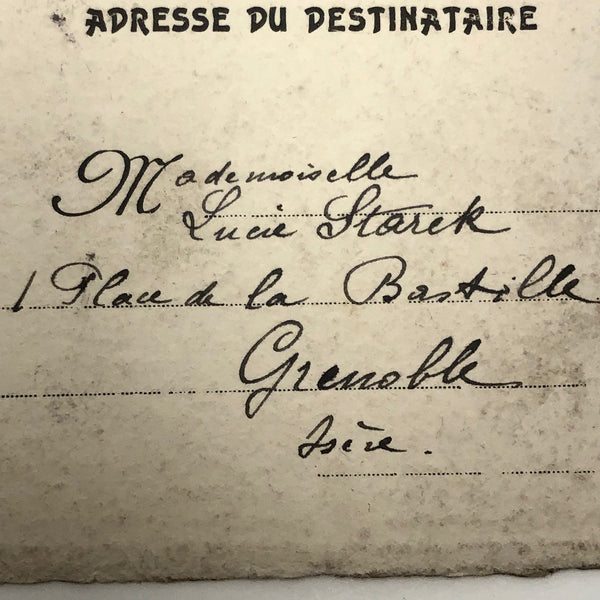 ADRESSE DU DESTINATAIRE
Mademoiselle
Lucie Starck
1 Place de la Bastille
Grenoble
Isère.